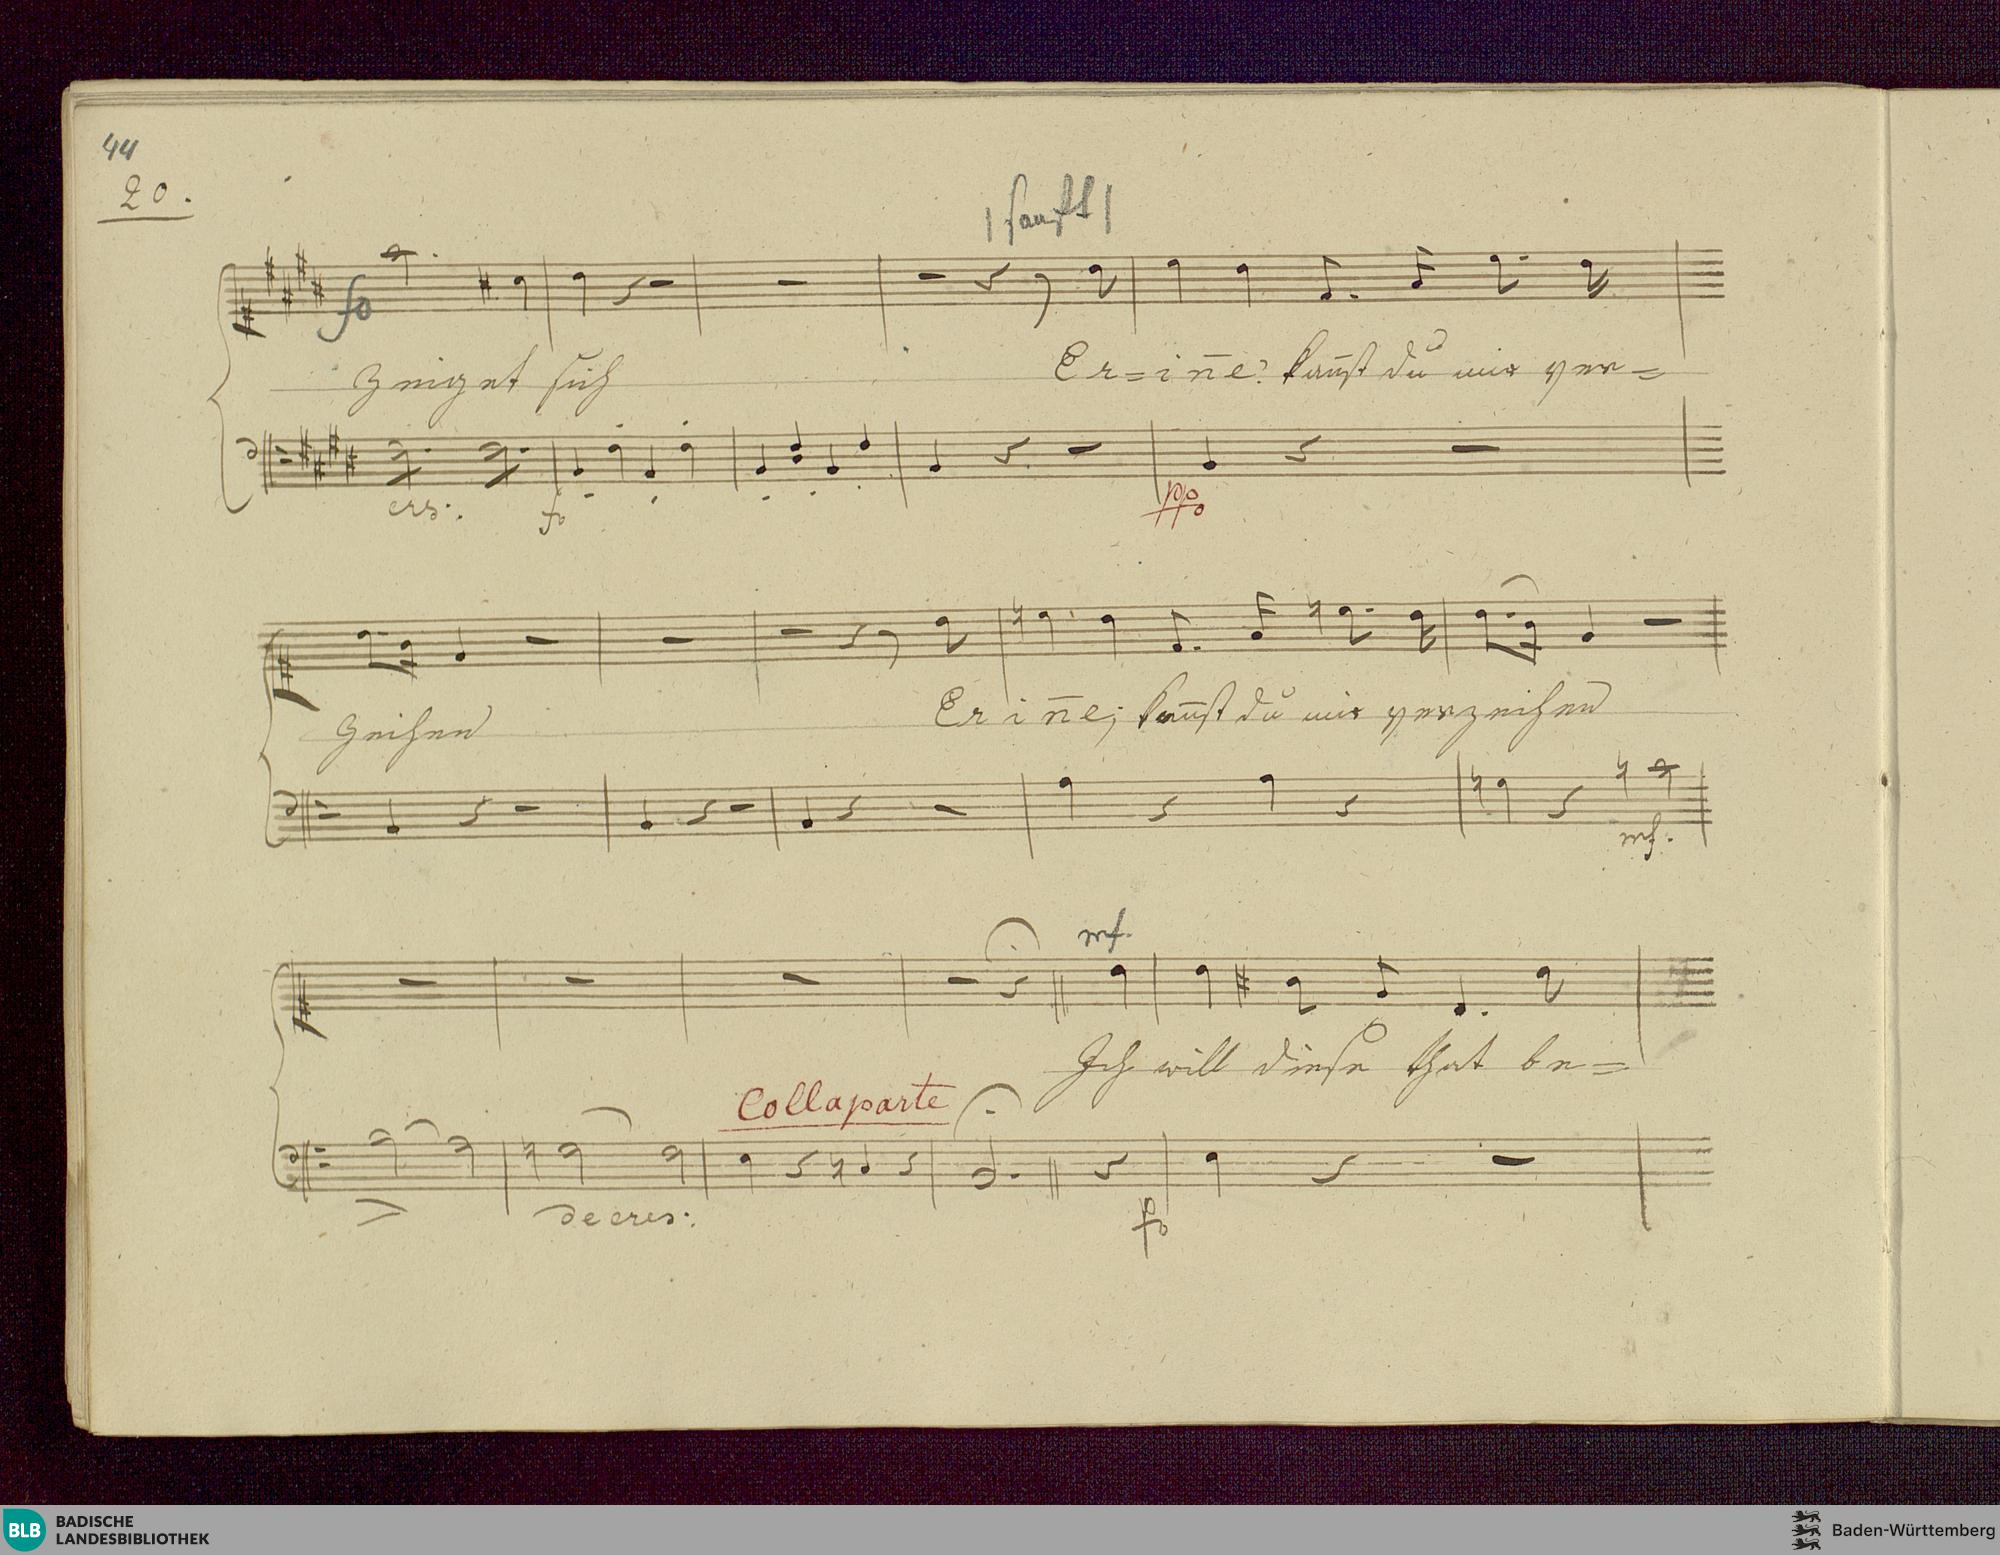 44
20.
| sanft |
fo
zeiget sich Er=iñe? kañst du mir ver=
crs:. fo
ppo
zeihen Er iñe; kañst du mir verzeihen
mf.
mf.
Ich will diese that be=
Collaparte
decres:
fo
BLB BADISCHE
LANDESBIBLIOTHEK
Baden-Württemberg